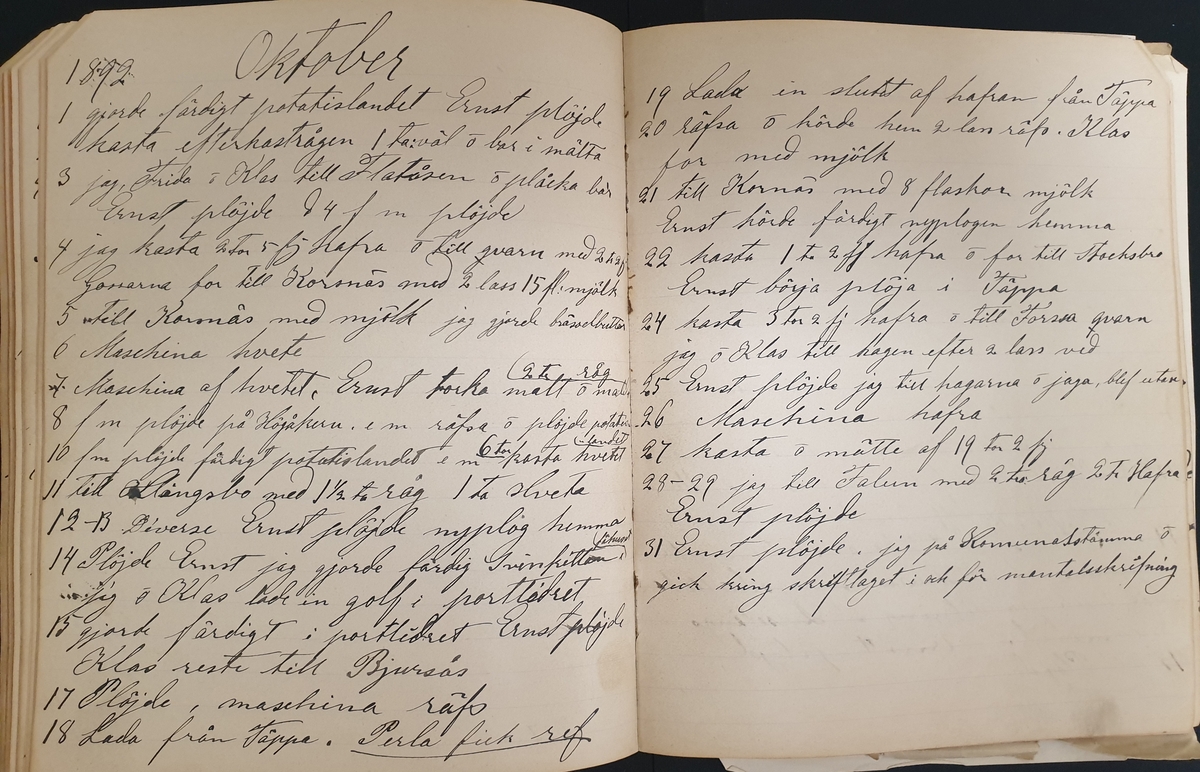 1892 Oktober
1 gjorde färdigt potatislandet Ernst plöjde
kasta efterkastrågen 1 ta: väl o bar i mälta
3 jag, Frida o Klas till Flatåsen o plåcka bär
Ernst plöjde d 4 f m plöjde
4 jag kasta 2 tor 5 fj hafra o till qvarn med
Gossarna for till Korsnäs med 2 lass 15 fl: mjölk
5 till Kornäs med mjölk jag gjorde
6 Maschina hvete
7 Maschina af hvetet. Ernst torka malt o
(2 tr råg
8 f m plöjde på Höjåkern. e m räfsa o plöjde potatis-
landet
10 fm plöjde färdigt potatislandet e m kasta hvetet
6 tor
11 till Långsbo med 1½ ta råg 1 ta hveta
12-13 Diverse Ernst plöjde nyplög hemma
14 Plöjde Ernst jag gjorde färdig Svinkitten i
fähuset
jag o Klas lade in golf i portlidret
15 gjorde färdigt i portlidret Ernst plöjde
Klas reste till Bjursås
17 Plöjde, maschina räfs
18 Lada från Täppa. Perla fick ref
19 Lada in slutet af hafran från Täppa
20 räfsa o körde hem 2 lass räfs. Klas
for med mjölk
21 till Kornäs med 8 flaskor mjölk
Ernst körde färdigt nyplogen hemma
22 kasta 1 ta 2 fj hafra o for till Stocksbro
Ernst börja plöja i Täppa
24 kasta 3 tor 2 fj hafra o till Forssa qvarn
jag o Klas till hagen efter 2 lass ved
25 Ernst plöjde jag till hagarna o jaga, blef utan.
26 Maschina hafra
27 kasta o mätte af 19 tor 2 fj
28-29 jag till Falun med 2 tr råg 2 tr Hafra
Ernst plöjde
31 Ernst plöjde. jag på Komunalstämma o
gick kring skriftlaget i och för mantalsskrifning